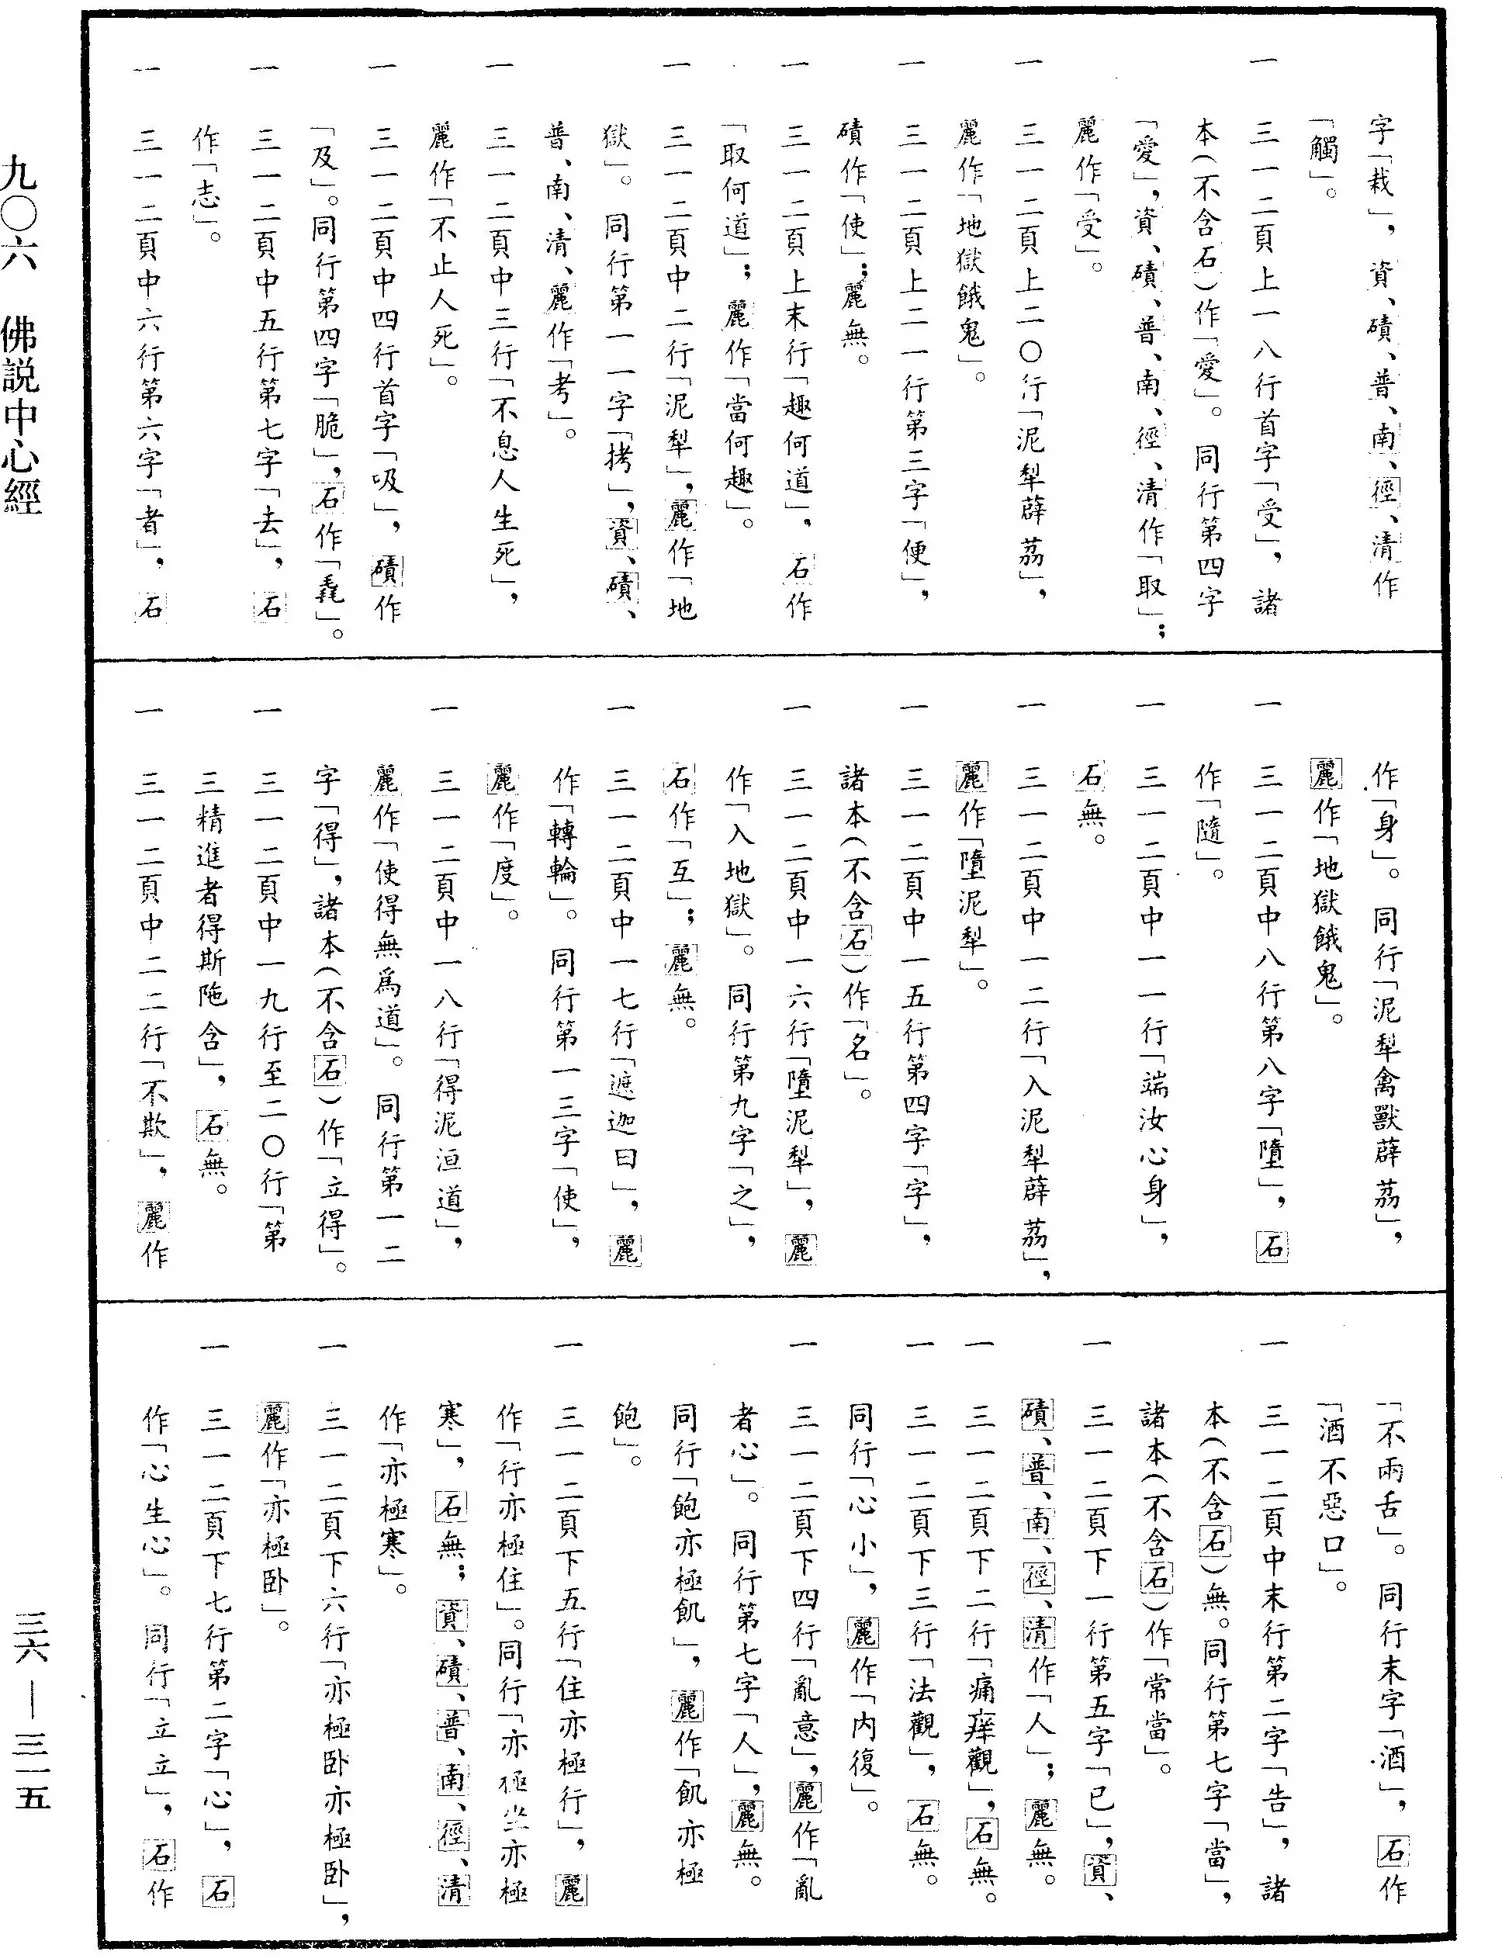 字「栽」，資、磧、普、南、徑、清作
「觸」。
一 三一二頁上一八行首字「受」，諸
本（不含石）作「愛」。同行第四字
「愛」，資、磧、普、南、徑、清作「取」；
麗作「受」。
一 三一二頁上二〇行「泥犁薜荔」，
麗作「地獄餓鬼」。
一 三一二頁上二一行第三字「便」，
磧作「使」；麗無。
一 三一二頁上末行「趣何道」，石作
「取何道」；麗作「當何趣」。
一 三一二頁中二行「泥犁」，麗作「地
獄」。同行第一一字「拷」，資、磧、
普、南、清、麗作「考」。
一 三一二頁中三行「不息人生死」，
麗作「不止人死」。
一 三一二頁中四行首字「吸」，磧作
「及」。同行第四字「脆」，石作「毳」。
一 三一二頁中五行第七字「去」，石
作「志」。
一 三一二頁中六行第六字「者」，石
作「身」。同行「泥犁禽獸薜荔」，
麗作「地獄餓鬼」。
一 三一二頁中八行第八字「墮」，石
作「隨」。
一 三一二頁中一一行「端汝心身」，
石無。
一 三一二頁中一二行「入泥犁薜荔」，
麗作「墮泥犁」。
一 三一二頁中一五行第四字「字」，
諸本（不含石）作「名」。
一 三一二頁中一六行「墮泥犁」，麗
作「入地獄」。同行第九字「之」，
石作「互」；麗無。
一 三一二頁中一七行「遮迦曰」，麗
作「轉輪」。同行第一三字「使」，
麗作「度」。
一 三一二頁中一八行「得泥洹道」，
麗作「使得無爲道」。同行第一二
字「得」，諸本（不含石）作「立得」。
一 三一二頁中一九行至二〇行「第
三精進者得斯陁含」，石無。
一 三一二頁中二二行「不欺」，麗作
「不兩舌」。同行末字「酒」，石作
「酒不惡口」。
一 三一二頁中末行第二字「告」，諸
本（不含石）無。同行第七字「當」，
諸本（不含石）作「常當」。
一 三一二頁下一行第五字「已」，資、
磧、普、南、徑、清作「人」；麗無。
一 三一二頁下二行「痛痒觀」，石無。
一 三一二頁下三行「法觀」，石無。
同行「心小」，麗作「内復」。
一 三一二頁下四行「亂意」，麗作「亂
者心」。同行第七字「人」，麗無。
同行「飽亦極飢」，麗作「飢亦極
飽」。
一 三一二頁下五行「住亦極行」，麗
作「行亦極住」。同行「亦極坐亦極
寒」，石無；資、磧、普、南、徑、清
作「亦極寒」。
一 三一二頁下六行「亦極卧亦極卧」，
麗作「亦極卧」。
一 三一二頁下七行第二字「心」，石
作「心生心」。同行「立立」，石作
九〇六 佛説中心經
三六 — 三一五